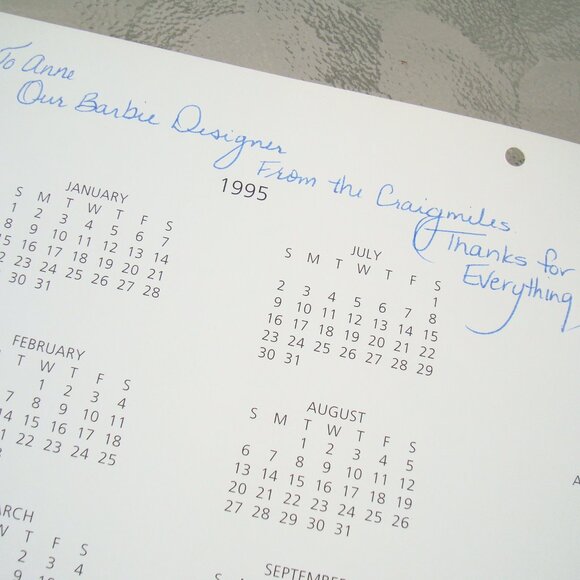 To Anne
Our Barbie Designer
From the Craigmiles
Thanks for
Everything
1995
JANUARY
S M T W T F S
1 2 3 4 5 6 7
8 9 10 11 12 13 14
15 16 17 18 19 20 21
22 23 24 25 26 27 28
30 31
FEBRUARY
T W T F S
1 2 3 4
7 8 9 10 11
14 15 16 17 18
21 22 23 24 25
ARCH
W T F S
2 3 4
9 10
JULY
S M T W T F S
1
2 3 4 5 6 7 8
9 10 11 12 13 14 15
16 17 18 19 20 21 22
23 24 25 26 27 28 29
30 31
AUGUST
S M T W T F S
1 2 3 4 5
6 7 8 9 10 11 12
13 14 15 16 17 18 19
20 21 22 23 24 25 26
27 28 29 30 31
SEPTEMBER